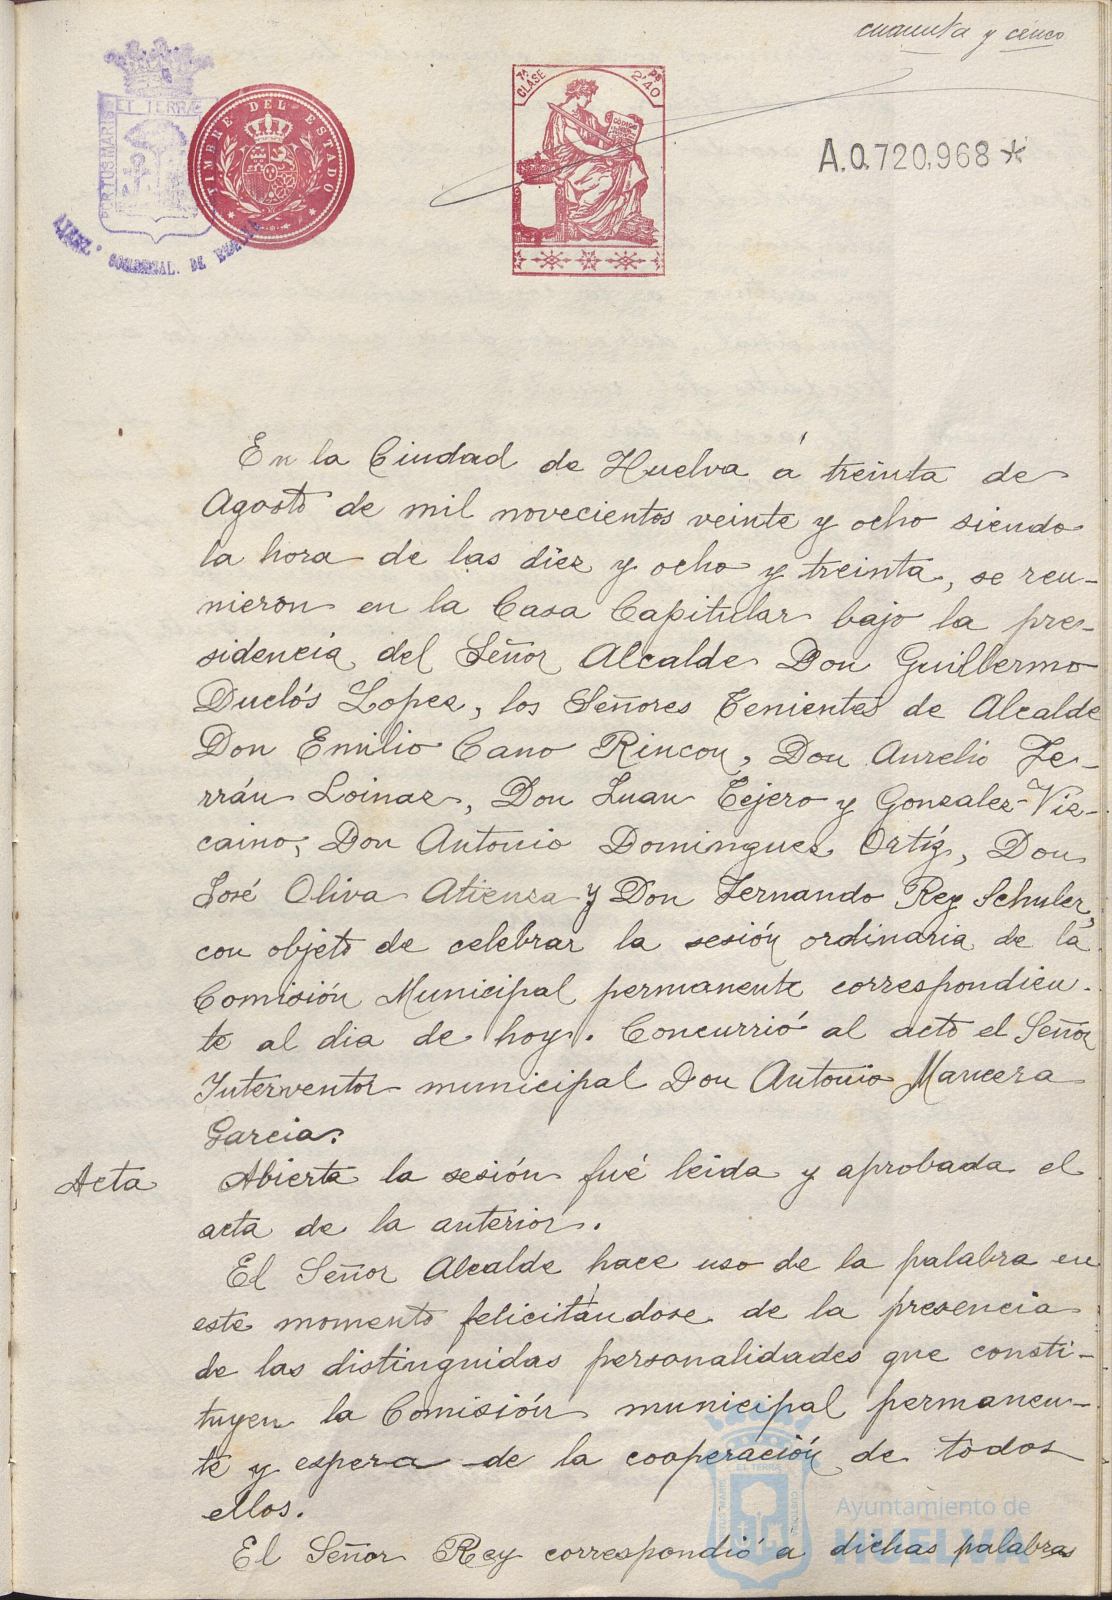 cuarenta y cinco
PORTUS MARIS ET TERRÆ
TIMBRE DEL ESTADO
7ª CLASE
2'40 PS
A.0.720,968*
En la Ciudad de Huelva á treinta de
Agosto de mil novecientos veinte y ocho siendo
la hora de las diez y ocho y treinta, se reu-
nieron en la Casa Capitular bajo la pre-
sidencia del Señor Alcalde Don Guillermo
Duclós Lopez, los Señores Tenientes de Alcalde
Don Emilio Cano Rincon, Don Aurelio Te-
rrán Loinaz, Don Juan Tejero y Gonzalez-Viz-
caino, Don Antonio Dominguez Ortíz, Don
José Oliva Atienza y Don Fernando Rey Schuler,
con objeto de celebrar la sesión ordinaria de la
Comisión Municipal permanente correspondien-
te al dia de hoy. Concurrió al acto el Señor
Interventor municipal Don Antonio Mancera
Garcia.
Acta
Abierta la sesión fué leida y aprobada el
acta de la anterior.
El Señor Alcalde hace uso de la palabra en
este momento felicitándose de la presencia
de las distinguidas personalidades que consti-
tuyen la Comisión municipal permanen-
te y espera de la cooperación de todos
ellos.
El Señor Rey correspondió a dichas palabras
Ayuntamiento de
HUELVA